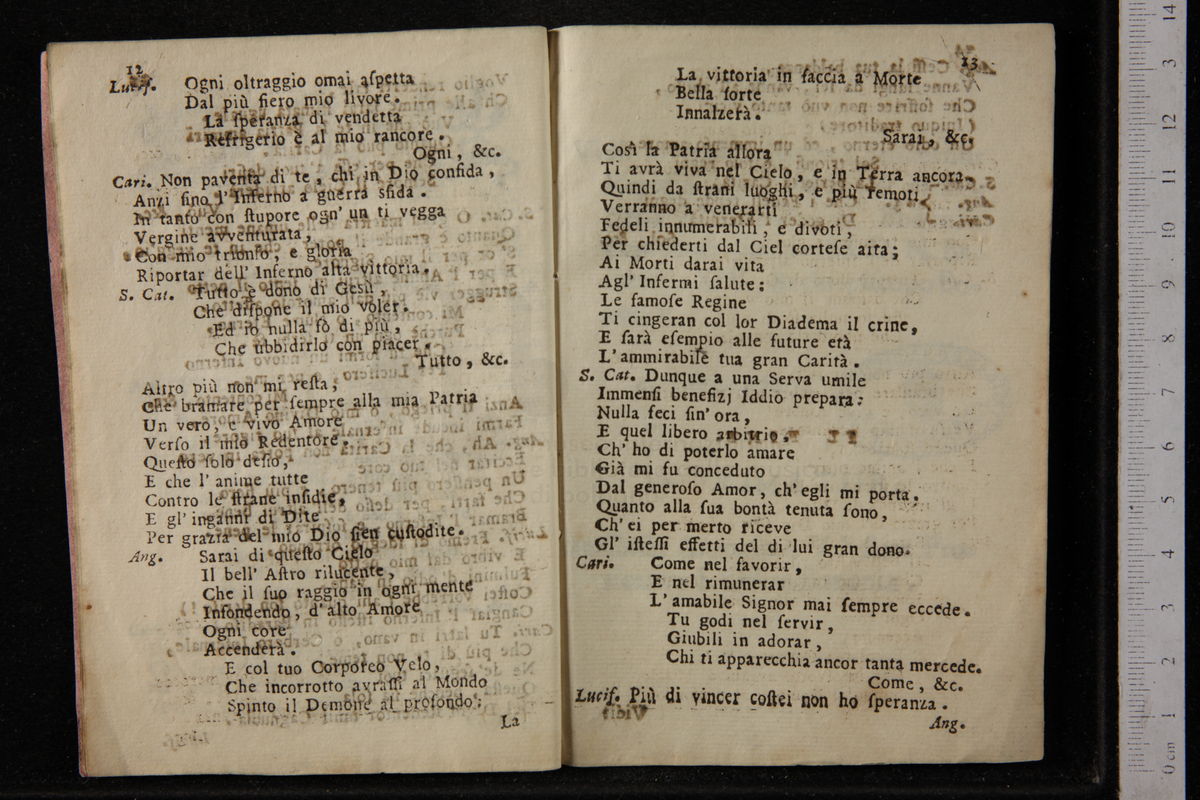 12
Lucif. Ogni oltraggio omai aſpetta
Dal più fiero mio livore.
La ſperanza di vendetta
Refrigerio è al mio rancore.
Ogni, &c.
Cari. Non paventa di te, chi in Dio confida,
Anzi ſino l'Inferno a guerra sfida.
In tanto con ſtupore ogn' un ti vegga
Vergine avventurata,
Con mio trionfo, e gloria
Riportar dell' Inferno alta vittoria.
S. Cat. Tutto è dono di Gesù,
Che diſpone il mio voler.
Ed io nulla fò di più,
Che ubbidirlo con piacer.
Tutto, &c.
Altro più non mi reſta,
Che bramare per ſempre alla mia Patria
Un vero, e vivo Amore
Verſo il mio Redentore.
Queſto ſolo deſio,
E che l' anime tutte
Contro le ſtrane inſidie,
E gl' inganni di Dite
Per grazia del mio Dio ſien cuſtodite.
Ang. Sarai di queſto Cielo
Il bell' Aſtro rilucente,
Che il ſuo raggio in ogni mente
Infondendo, d'alto Amore
Ogni core
Accenderà.
E col tuo Corporeo Velo,
Che incorrotto avraſſi al Mondo
Spinto il Demone al profondo;
La
13
La vittoria in faccia a Morte
Bella ſorte
Innalzerà.
Sarai, &c.
Così la Patria allora
Ti avrà viva nel Cielo, e in Terra ancora.
Quindi da ſtrani luoghi, e più remoti
Verranno a venerarti
Fedeli innumerabili, e divoti,
Per chiederti dal Ciel corteſe aita;
Ai Morti darai vita
Agl' Infermi ſalute:
Le famoſe Regine
Ti cingeran col lor Diadema il crine,
E ſarà eſempio alle future età
L' ammirabile tua gran Carità.
S. Cat. Dunque a una Serva umile
Immenſi benefizj Iddio prepara:
Nulla feci ſin' ora,
E quel libero arbitrio,
Ch' ho di poterlo amare
Già mi fu conceduto
Dal generoſo Amor, ch' egli mi porta.
Quanto alla ſua bontà tenuta ſono,
Ch' ei per merto riceve
Gl' iſteſſi effetti del di lui gran dono.
Cari. Come nel favorir,
E nel rimunerar
L' amabile Signor mai ſempre eccede.
Tu godi nel ſervir,
Giubili in adorar,
Chi ti apparecchia ancor tanta mercede.
Come, &c.
Lucif. Più di vincer coſtei non ho ſperanza.
Ang.